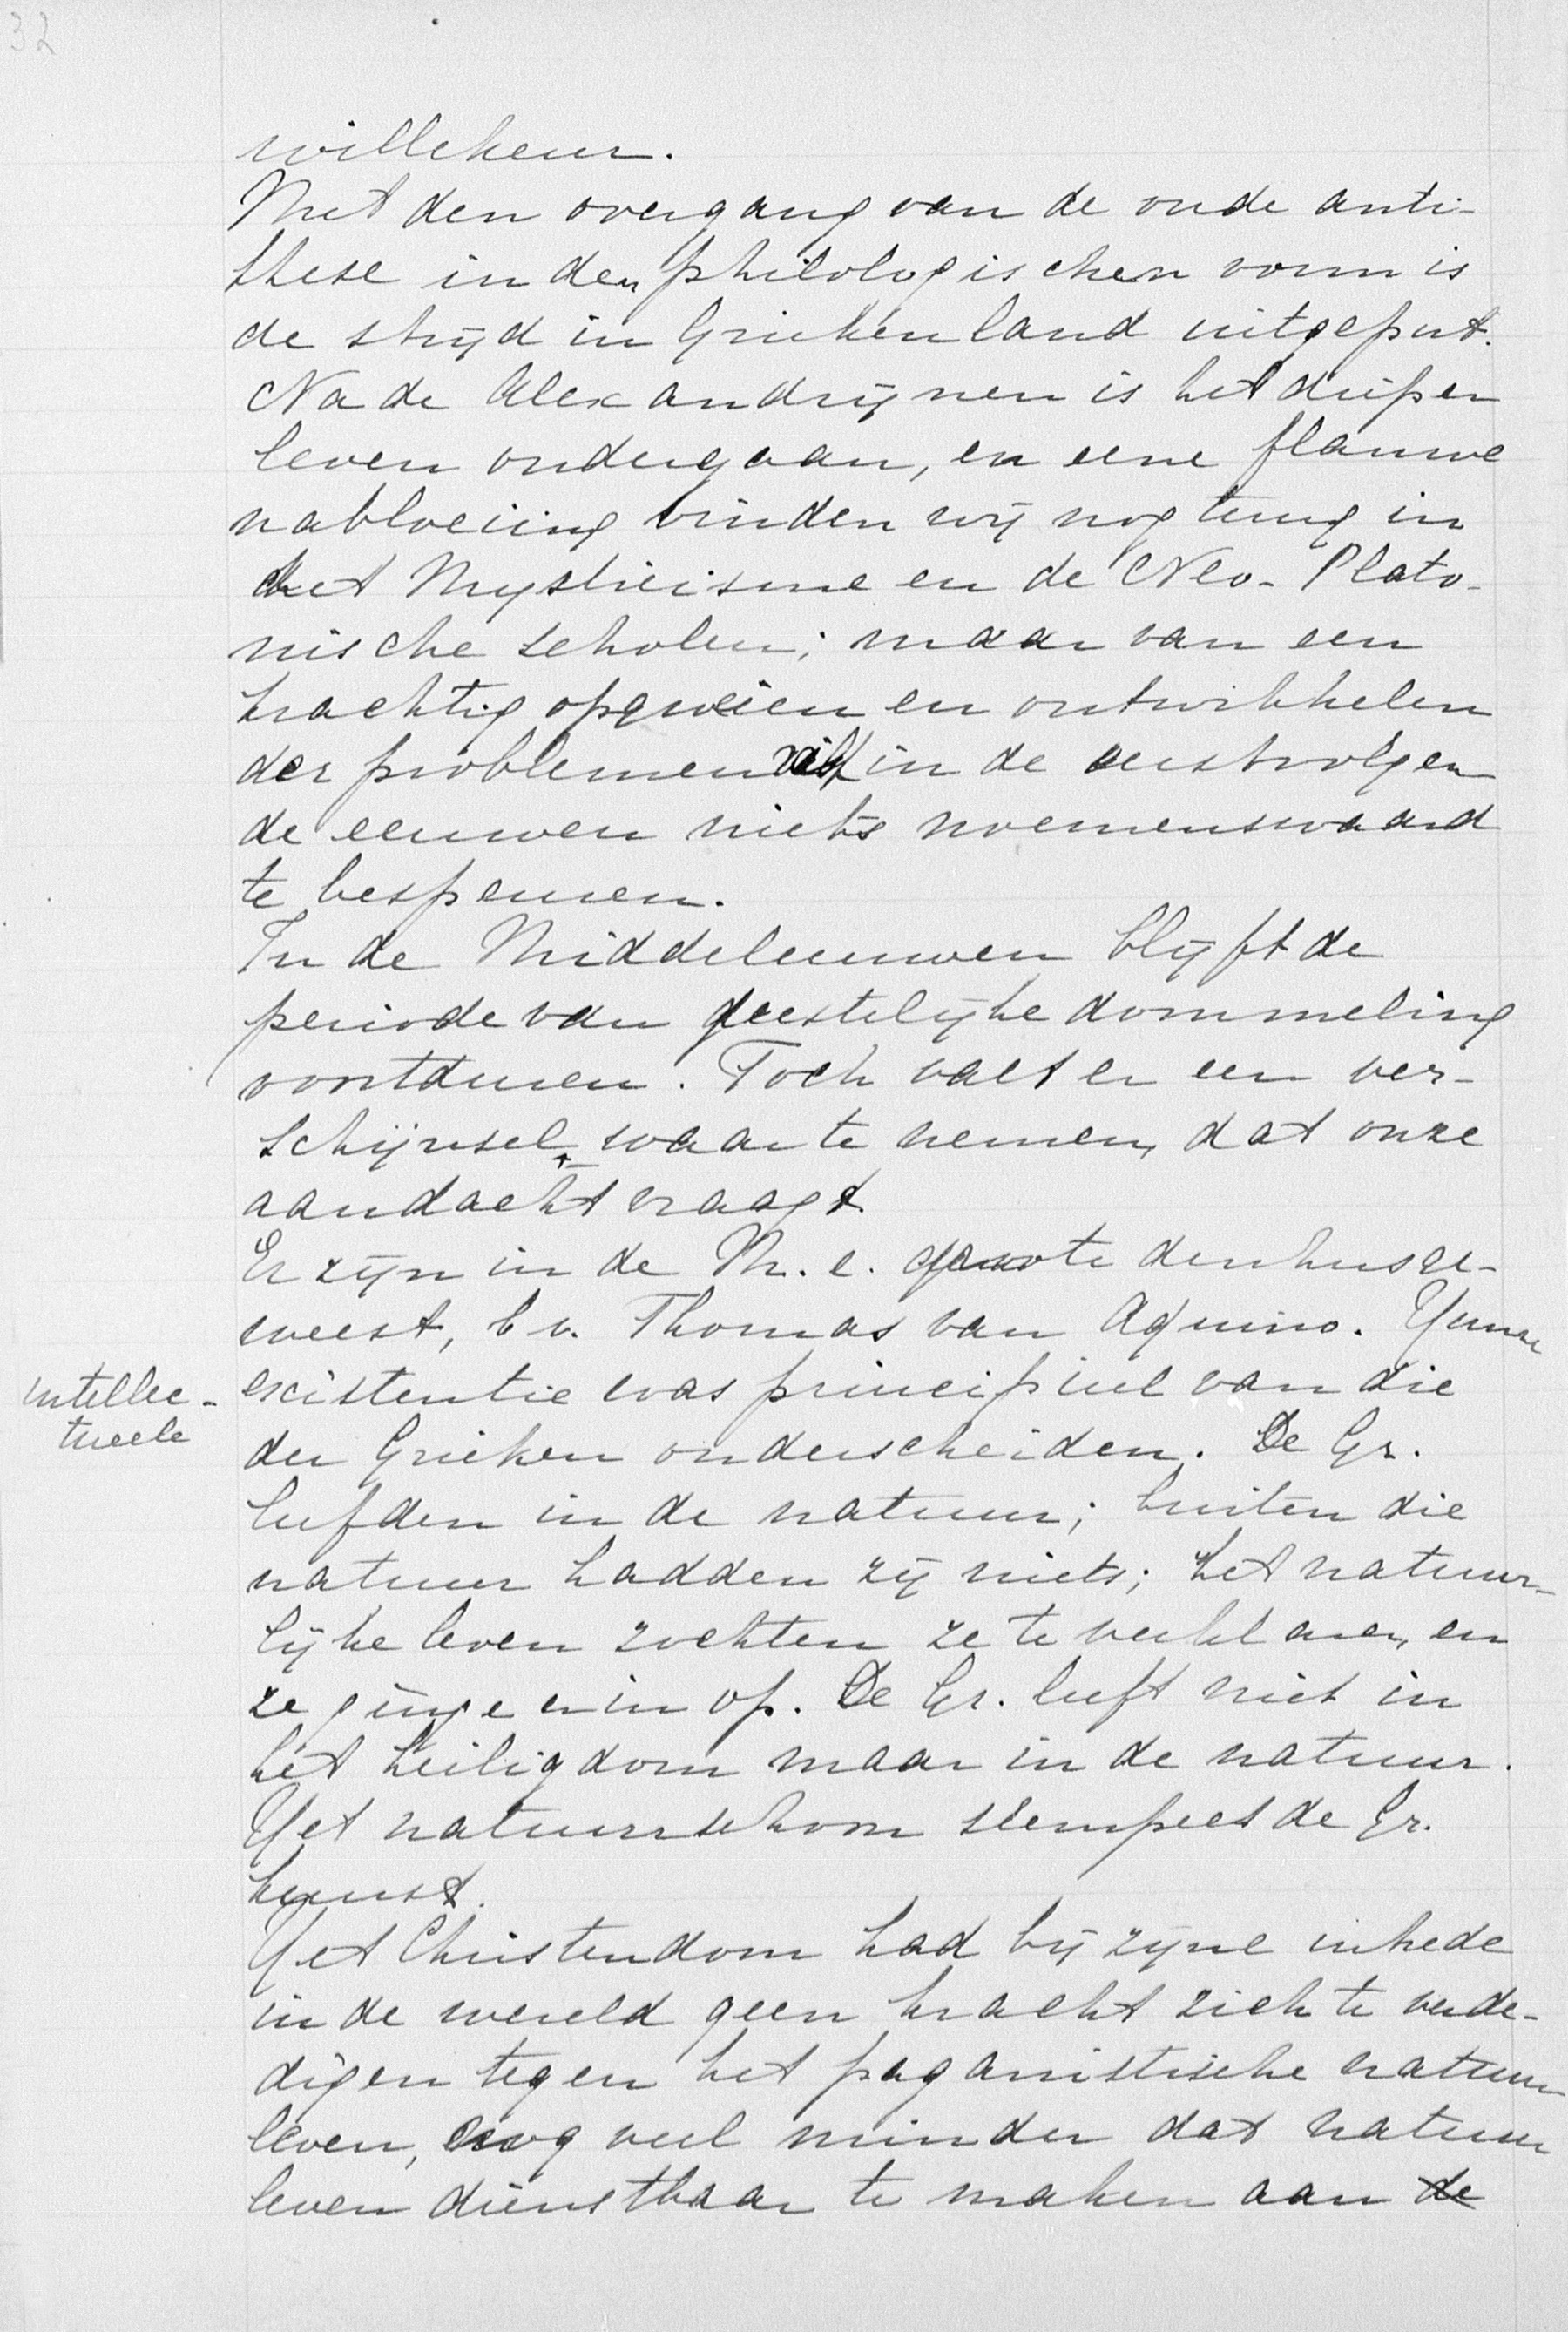 32
willekeur.
Met den overgang van de oude anti-
these in den philologischen vorm is
de strijd in Griekenland uitgeput.
Na de Alexandrijnen is het dieper
leven ondergaan, en eene flauwe
nabloeiing vinden wij nog terug in
het Mysticisme en de Neo-Plato-
nische scholen; maar van een
krachtig opgroeien en ontwikkelen
der problemen valt in de eerstvolgen
de eeuwen niets noemenswaard
te bespeuren.
In de Middeleeuwen blijft de
periode van geestelijke dommeling
voortduren. Toch valt er een ver-
schijnsel waar te nemen, dat onze
aandacht vraagt.
Er zijn in de M.e. groote denkers ge-
weest, b v. Thomas van Aquino. Hunne
intellec-
tueele
existentie was principieel van die
der Grieken onderscheiden. De Gr.
leefden in de natuur; buiten die
natuur hadden zij niets; het natuur-
lijke leven zochten ze te verklaren, en
ze gingen in op. De Gr. leeft niet in
het heiligdom maar in de natuur.
Het natuurschoon stempelt de Gr.
kunst.
Het Christendom had bij zijne intrede
in de wereld geen kracht zich te verde-
digen tegen het paganistische natuur
leven, nog veel minder dat natuur
leven dienstbaar te maken aan de